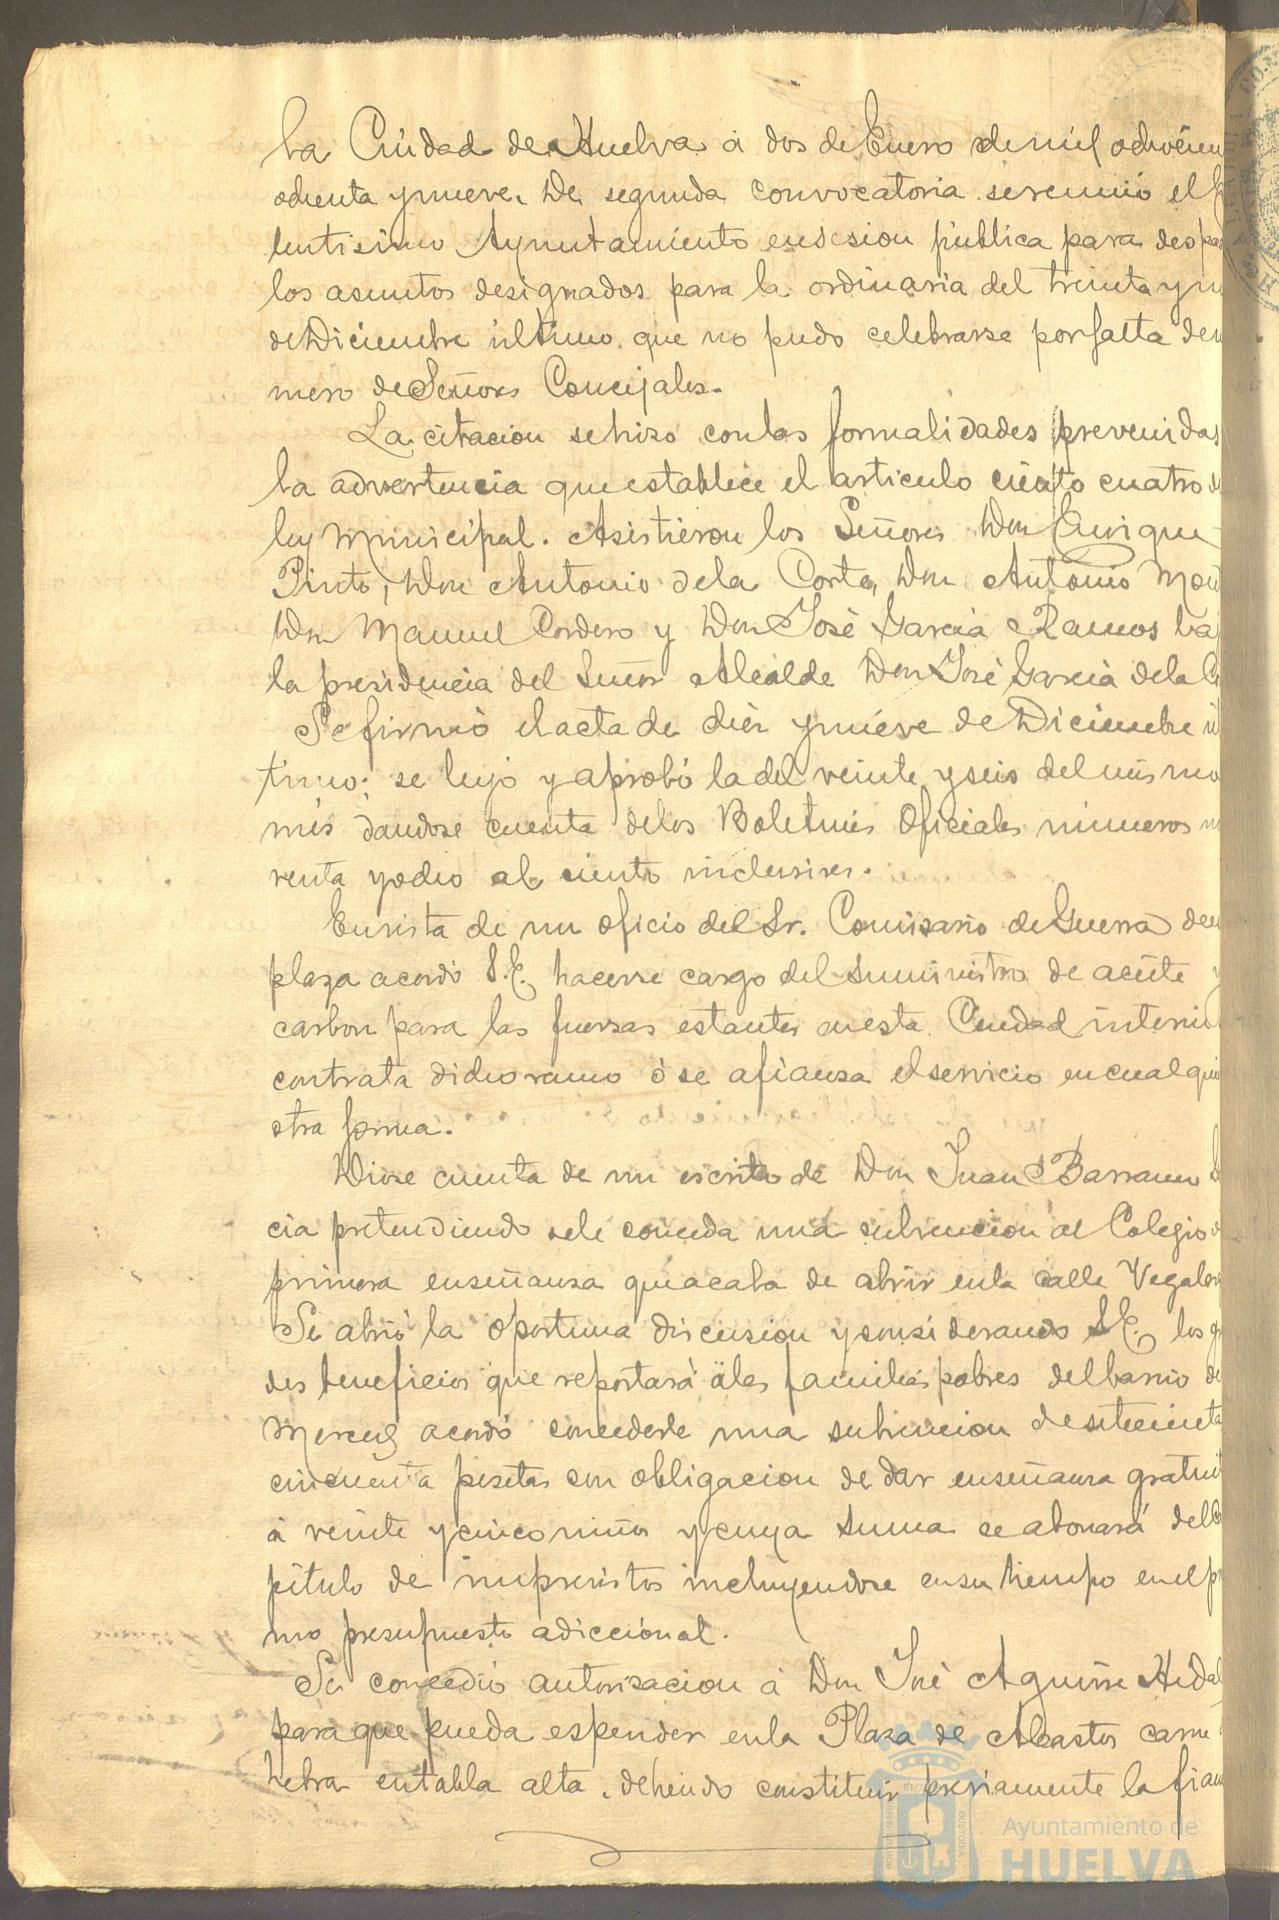 la Ciudad de Huelva á dos de Enero de mil ochocien
ochenta y nueve. De segunda convocatoria se reunió el E
lentisimo Ayuntamiento en sesion pública para despa
los asuntos designados para la ordinaria del treinta y u
de Diciembre último que no pudo celebrarse por falta de n
mero de Señores Concejales.
La citacion se hizo con las formalidades prevenidas
la advertencia que establece el articulo ciento cuatro d
ley Municipal. Asistieron los Señores Don Enrique
Pinto, Don Antonio de la Corte, Don Antonio Mo
Don Manuel Cordero y Don José Garcia Ramos baj
la presidencia del Señor Alcalde Don José Garcia de la
Se firmó el acta de diez y nueve de Diciembre úl
timo; se leyó y aprobó la del veinte y seis del mismo
mes dandose cuenta de los Boletines Oficiales números no
venta y ocho al ciento inclusives.
En vista de un oficio del Sr. Comisario de Guerra de es
plaza acordó S.E. hacerse cargo del suministro de aceite y
carbon para las fuerzas estantes en esta Ciudad interin
contrata dicho ramo ó se afianza el servicio en cualqui
otra forma.
Diose cuenta de un escrito de Don Juan Barranco
cia pretendiendo se le conceda una subvencion al Colegio d
primera enseñanza que acaba de abrir en la calle Vegalar
Se abrió la oportuna discusion y considerando S.E. los g
des beneficios que reportará á las familias pobres del barrio de
Merced acordó concederle una subvencion de setecienta
cincuenta pesetas con obligacion de dar enseñanza gratuit
á veinte y cinco niños y cuya suma se abonará del Ca
pítulo de imprevistos incluyendose en su tiempo en el pr
mo presupuesto adiccional.
Se concedió autorizacion á Don José Aguirre Hidal
para que pueda espender en la Plaza de Abastos carne
hebra en tabla alta, debiendo constituir previamente la fian
Ayuntamiento de
HUELVA